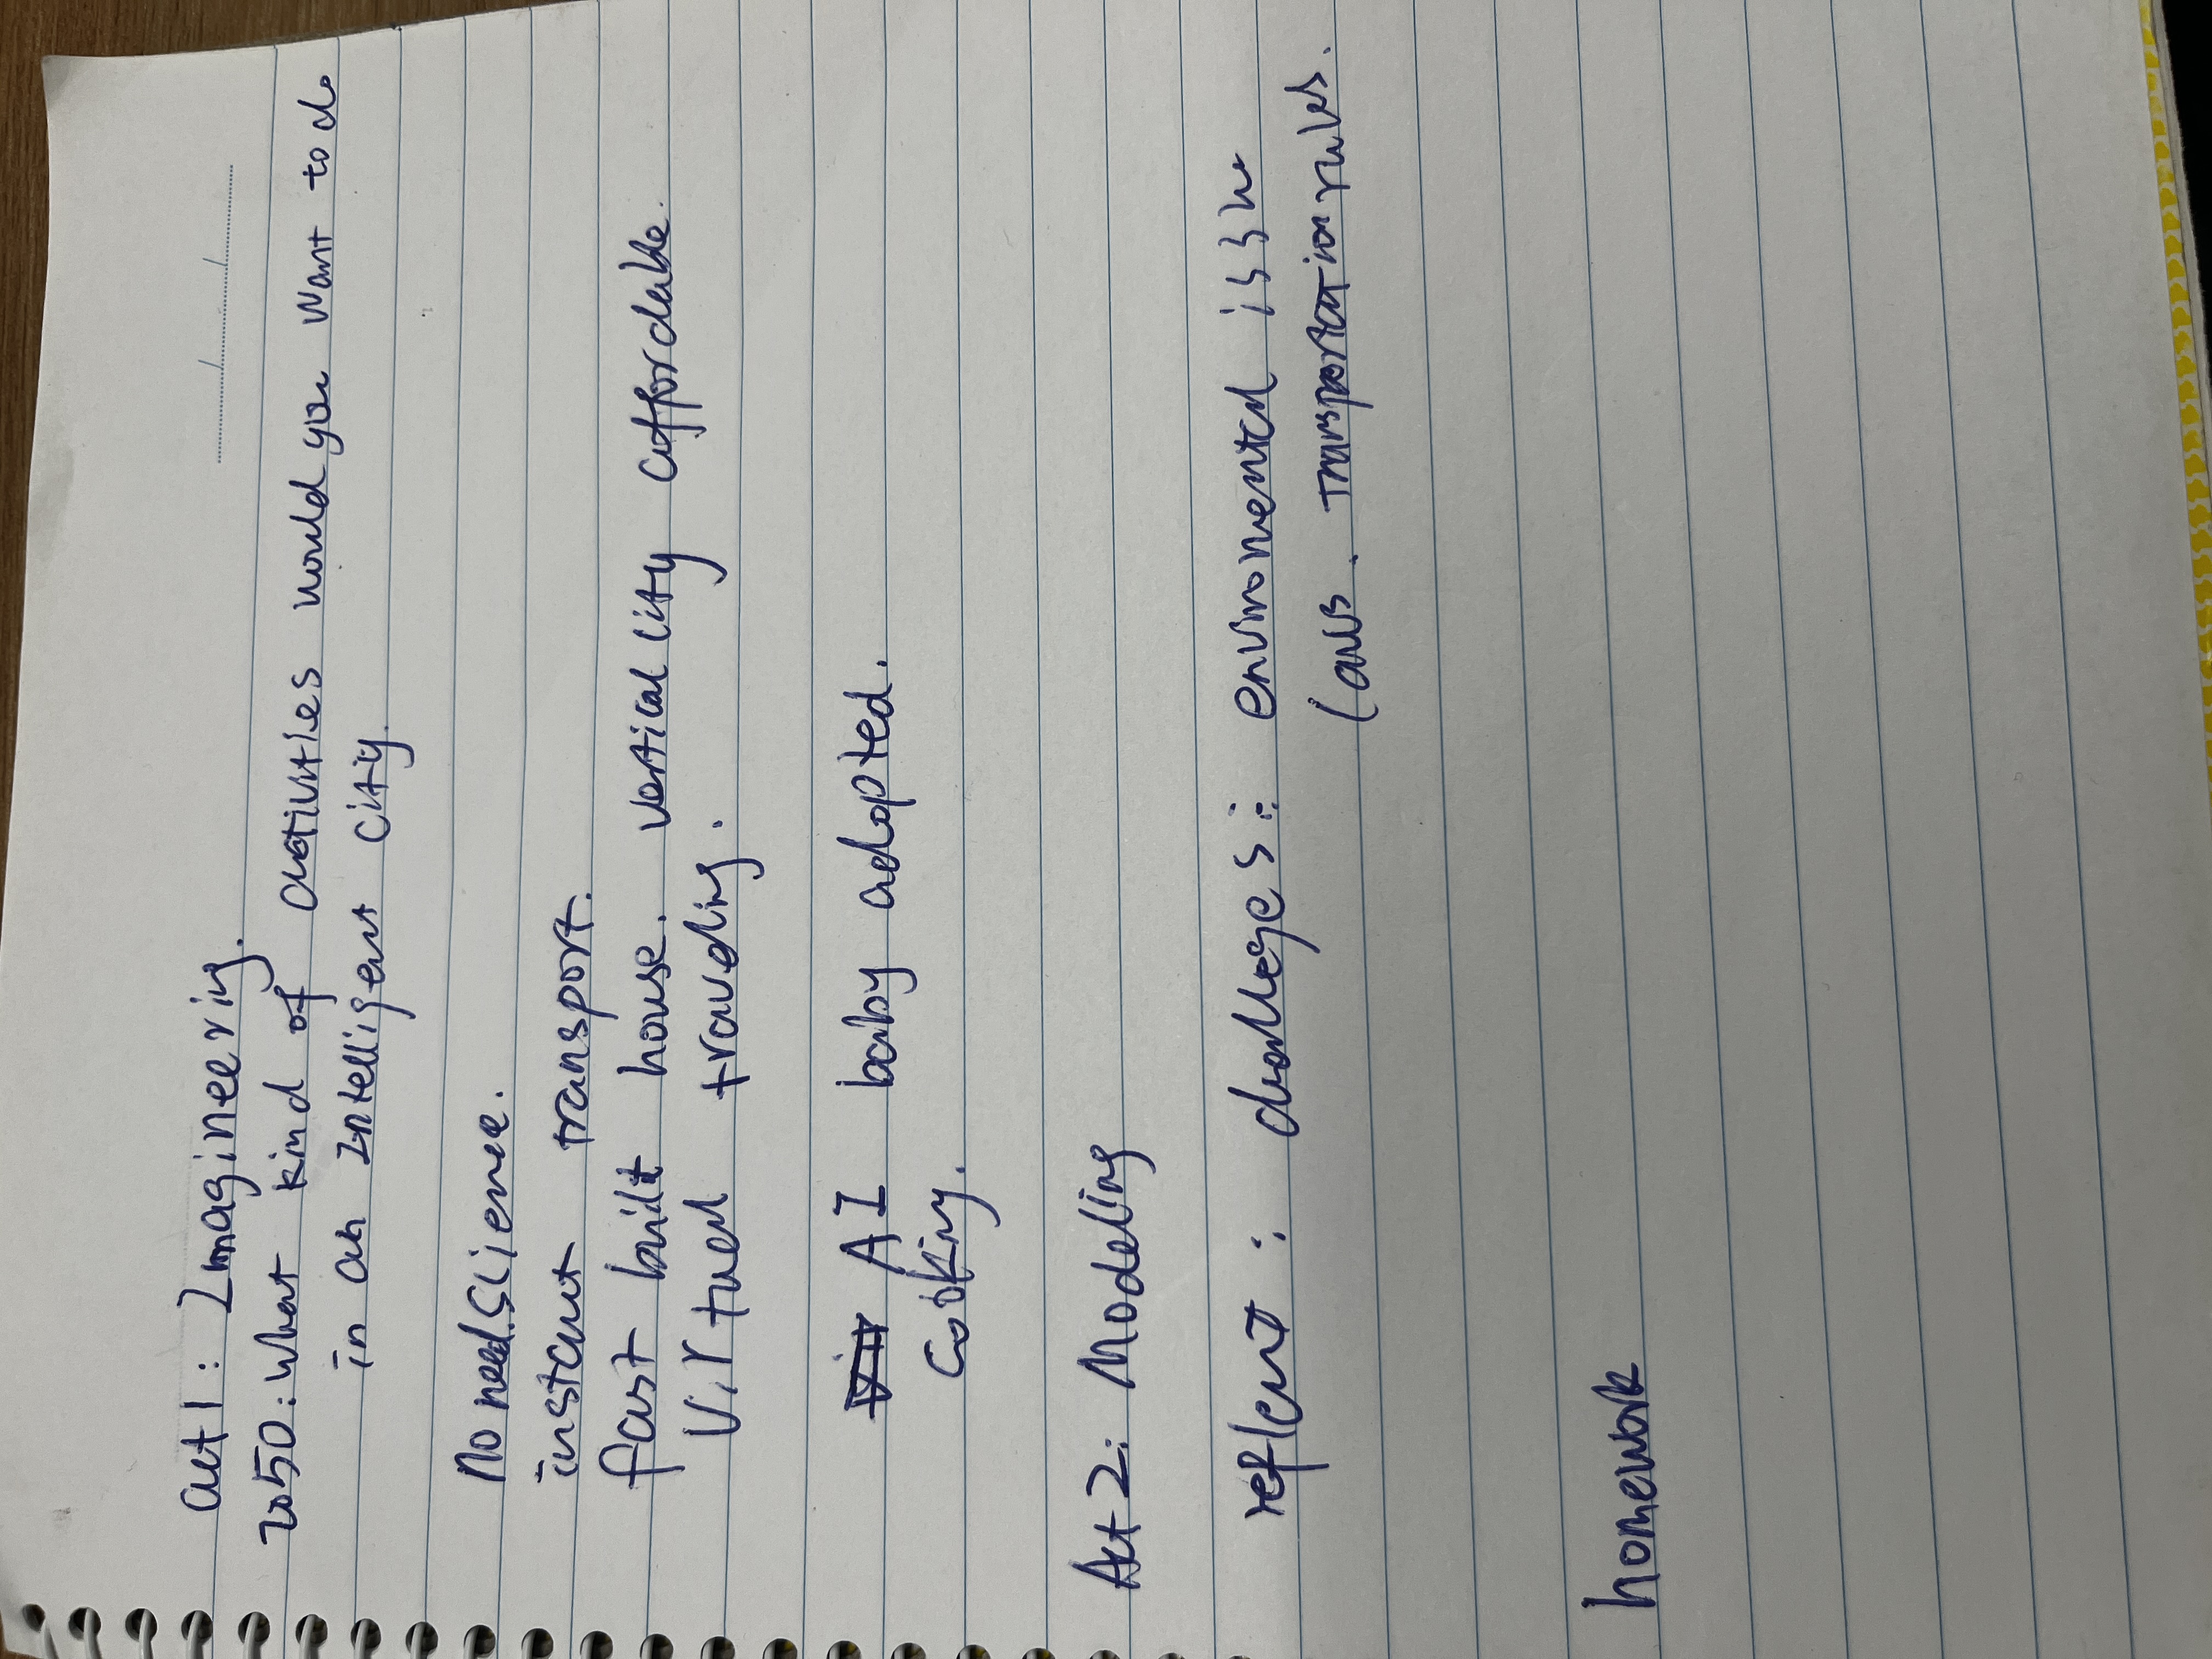 act 1: Imagineering.
2050: What kind of activities would you want to do
in an Intelligent city.
No need. Science.
instant transport.
fast built house. vertical city affordable.
Virtual traveling.
AI baby adopted.
cooking.
Act 2: Modeling
reflent: challeges: enviromental issue
laws. Transportation rules.
homework